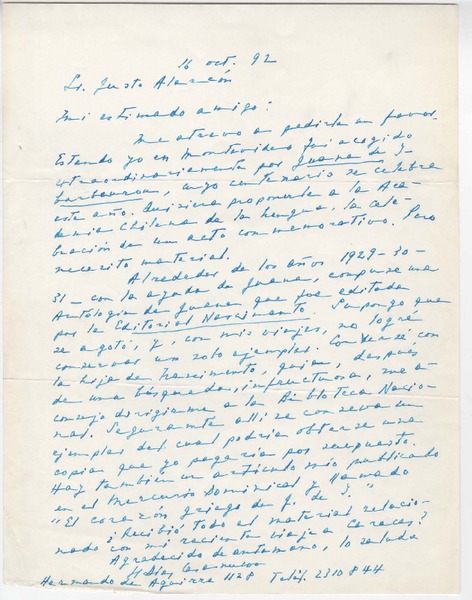 16 oct. 92
Sr. Justo Alarcón
Mi estimado amigo:
Me atrevo a pedirle un favor.
Estando yo en Montevideo fui acogido
extraordinariamente por Juana de I-
barbourou, cuyo centenario se celebra
este año. Quisiera proponerle a la Aca-
demia Chilena de la Lengua, la cele-
bración de un acto conmemorativo. Pero
necesito material.
Alrededor de los años 1929-30-
31 - con la ayuda de Juana, compuse una
Antología de Juana que fue editada
por la Editorial Nascimento. Supongo que
se agotó, y, con mis viajes, no logré
conservar un solo ejemplar. Conversé con
la hija de Nascimento, quien, después
de una búsqueda, infructuosa, me a-
consejó dirigirme a la Biblioteca Nacio-
nal. Seguramente allí se conserva un
ejemplar del cual podría obtenerse una
copia que yo pagaría por supuesto.
Hay también un artículo mío publicado
en el Mercurio Dominical y llamado
"El corazón griego de J. de I."
¿Recibió todo el material relacio-
nado con mi reciente viaje a Caracas?
Agradecido de antemano, lo saluda
H Díaz Casanueva
Hernando de Aguirre 1128 Teléf. 2310844